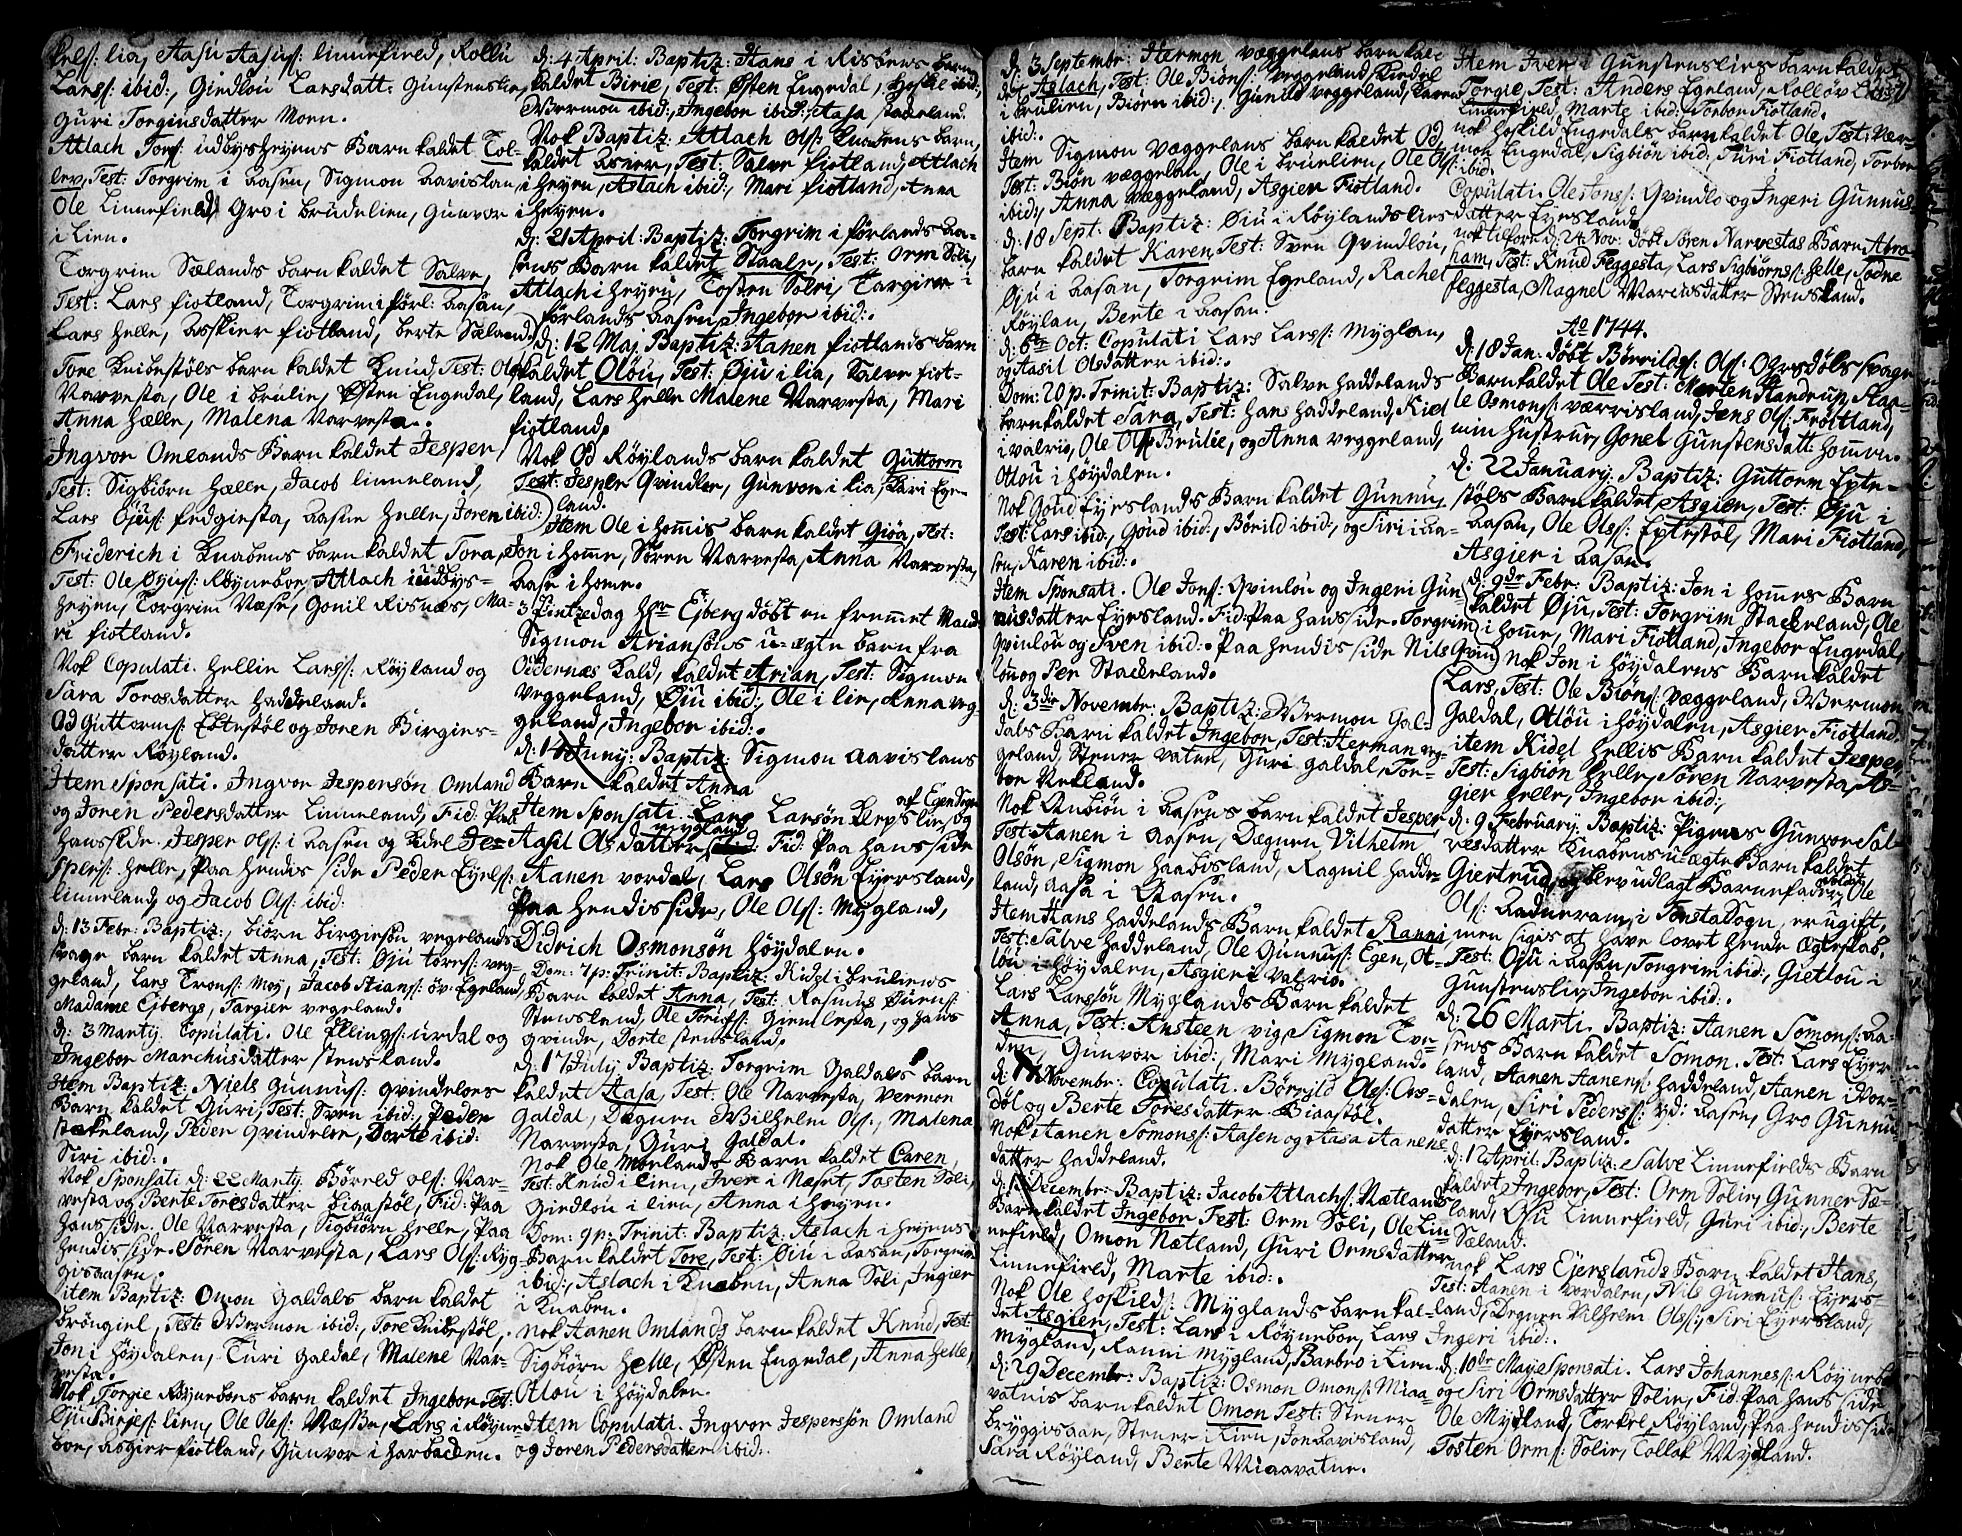 kels: lia, Aasu Aasus: linnefield, Rollu
Lars: ibid:, Giedlou Larsdatt: Gunstenslie,
Guri Torginsdatter Moen.
Atlach Tors: udbÿsheyens Barn kaldet Tol-
lev, Test: Torgrim i Aasen, Sigmon Aavislan,
Ole Linnefield, Gro i brudelien, Gunvor
i Lien.
Torgrim Sælands barn kaldet Salve,
Test: Lars fiotland, Torgrim i förl: Aasan,
Lars Helle, Asskier fiotland, berte Sæland.
Tore Knibestöls barn kaldet Knud, Test: Ole
Narvesta, Ole i brulie, Østen Engedal,
Anna Hælle, Malena Narvesta.
Ingvor Omlands Barn kaldet Jesper
Test: Sigbiörn Hælle, Jacob linneland,
Lars Ojus: fedgiesta, Aasne Helle, Joren ibid:
Friderich i Knabens barn kaldet Tora,
Test: Ole Öyus: Röyneboe, Atlach i udbys-
heyen, Torgrim Næse, Gonil Risnes, Ma-
ri fiotland.
Nok Copulati. Hellie Larss: Röyland og
Sara Torosdatter Haddeland.
Od Guttorms: Eptestöl og Joren Birgies-
datter Röyland.
Item Sponsati. Ingvor Jespersön Omland
og Joren Pedersdatter Linneland, Fid: Paa
hans side. Jesper Ols: i Aasen og Kidel Je-
spers: Helle, Paa hendis side Peder Eyels:
linneland, og Jacob Ols: ibid:
d: 13 Febr: Baptiz:, biörn birgiesön vegelands
svage barn kaldet Anna, Test: Öju tores: veg-
geland, Lars Trons: moy, Jacob Stians: öv: Egeland,
Madame Ejbergs, Targier vegeland.
d: 3 Martÿ. Copulati. Ole Ellings: urdal og
Ingebor Marchusdatter stensland.
Item Baptiz: Niels Gunnus: Qvindeloes
Barn kaldet Guri, Test: Sven ibid:, Peder
stakeland, Peder Qvindelie, Dorte ibid:
Siri ibid:.
Nok Sponsati d: 22 Martÿ Börreld Ols: Nar-
vesta og Berte Toresdatter Biaastöl, Fid: Paa
hans side. Ole Narvesta, Sigbiörn Helle, Paa
hendis side. Sören Narvesta, Lars Ols: Ryg-
gisaasen.
item Baptiz: Omon Galdals barn kaldet
bröngiel, Teste Wermon ibid:, Tore Knibestöl,
Jon i Höydalen, Turi Galdal, Malene Nar-
vesta.
Nok Torgie Röynebons barn kaldet Ingebor Test:
Öju Birjes: lien, Ole Oles: Næsse, Lars i Röyne-
boe, Asgier fiotland, Gunvor i Harbacken.
d: 4 April: Baptiz: Hans i Risöens barn
kaldet Birie, Test: Østen Engedal, Hoskel ibid:,
Wermon ibid:, Ingebor ibid:, Aasa stadeland.
Nok Baptiz: Atlach Ols: Knabens barn,
kaldet Asner, Test: Salve fiotland, Atlach
i Heyen, Aslach ibid:, Mari fiotland, Anna
i heyen.
d: 21 April: Baptiz: Torgrim i förlands Aa-
sens Barn kaldet Staale, Test: Orm Söli,
Atlach i Heyen, Tosten Solri, Targier i
förlands Aasen, Ingebor ibid:.
d: 12 Maj Baptiz: Aanen fiotlands barn
kaldet Olöu, Test: Øju i lia, Salve fiot-
land, Lars Helle Malene Narvesta, Mari
fiotland.
Nok Od Röylands barn kaldet Guttorm
Test: Jesper Qvindlei, Gunvor i lia, Kari Eye-
land.
Item Ole i hommis barn kaldet Giöa, Test:
Jon i Homme, Sören Narvesta, Anna Narvesta,
Aase i home.
3 Pintzedag Hrn Ejberg döbt en fremmet Mands
Sigmon Ariansöns u-ægte barn fra
Oedernæs Kald, kaldet Arian, Test: Sigmon
veggeland, Öju ibid:, Ole i lie, Anna veg-
geland, Ingebor ibid:.
d: 16 Juny: Baptiz: Sigmon Aavislans
Barn kaldet Anna
Item Sponsati. Lars Larsön Klepslie, og af Egen Sogn
Aasil Osdatter mygland Fid: Paa hans side
Aanen vordal, Lars Olsön Eyersland,
Paa hendis side, Ole Ols: Mygland,
Didrich Osmonsön Höydalen.
Dom: 7 p: Trinit: Baptiz: Kidel i Bruliens
Barn kaldet Anna, Test: Rasmus Öiens:
Stensland, Ole Torics: Gienlesta, og hans
qvinde, Dorte stensland.
d: 17 July Baptiz: Torgrim Galdals barn
kaldet Aasa, Test: Ole Narvesta, Vermon
Galdal, Degnen Wilhelm Ols:, Malena
Narvesta, Guri Galdal.
Nok Ole Moelands Barn kaldet Caren,
Test: Knud i lien, Iver i Næset, Tosten Söli,
Giedlöu i lien, Anna i heyen.
Dom: 9 p: Trinit: Baptiz: Aslach i Heyens
Barn kaldet Tore, Test: Öju i Aasan, Torgrim
ibid:, Aslach i Knaben, Anna Söli, Ingier
i Knaben.
nok Aanen Omlands barn kaldet Knud, Test:
Sigbiörn Helle, Østen Engedal, Anna Helle,
Otlou i Höydalen.
Item Copulati. Ingvor Jespersön Omland
og Joren Pedersdatter ibid:.
d: 3 Septembr: Hermon Væggelans barn kal-
det Aslach, Test: Ole Biöns: Veggeland, Kidel
i Brulien, Biörn ibid:, Gunild veggeland, Karen
ibid:.
Item Sigmon Væggelans barn kaldet Od
Test: Biön væggelan, Ole i Bruelien, Ole Ols:
ibid:, Anna Væggeland, Asgier Fiotland.
d: 18 Sept: Baptiz: Öju i Röylandslies
barn kaldet Karen, Test: Sven Qvindlöu,
Öju i Aasan, Torgrim Egeland, Rachel
Röylan, Berte i Aasan.
d: 6te Oct: Copulati Lars Lars: Myglan,
og Aasil Olsdatter ibid:.
Dom: 20 p. Trinit: Baptiz: Salve Haddelands
barn kaldet Sara, Test: hans haddeland, Kiel
i valrie, Ole Ols Brulie, og Anna veggeland,
Otlou i höydalen.
Nok Goud Eyerslands Barn kaldet Gunnu,
Test: Lars ibid:, Goud ibid:, Börild ibid:, og Siri i Aa-
sen, Karen ibid:.
Item Sponsati. Ole Jons: Qvinlou og Ingeri Gun-
nusdatter Eyersland. Fid: Paa hans side. Torgrim
Qvinlöu og Sven ibid:. Paa hendis side Nils Qvin-
lou og Per Stackeland.
d: 3die Novembr: Baptiz: Wermon Gal-
dals Barn kaldet Ingebor, Test: Herman veg-
geland, Stener vatne, Guri Galdal, Tor-
bor Netland.
Nok Anbiön i Aasens barn kaldet Jesper
Test: Aanen i Aasen, Degnen Vilhelm
Olsön, Sigmon Haabisland, Ragnil Hadde-
land, Aasa i Aasen.
Item Hans Haddelands Barn kaldet Ranni,
Test: Salve Haddeland, Ole Gunnus: Egen, Ot-
lou i Höydalen, Asgieri Valrie.
Lars Larssön Myglands Barn kaldet
Anna, Test: Ansteen vig, Sigmon Tve-
den, Gunvor ibid:, Mari Mygland.
d: 18 Novembr: Copulati. Börgild Oles: Ors-
döl og Berte Toresdatter Biaastöl.
Nok Aanen Somons: Aasen og Aasa Aanens-
datter Haddeland.
d: 1 Decembr: Baptiz: Jacob Atlachs: Nætlands
Barn kaldet Ingebor Test: Orm Söli, Ole Lin-
nefield, Omon Nætland, Guri Ormsdatter
Linnefield, Marte ibid:.
Nok Ole Hoskilds: Myglands barn kal-
det Asgier, Test: Lars i Röyneboe, Lars
mygland, Ranni mygland, Barbro i Lien.
d: 29 Decembr: Baptiz: Osmon Omons: Miaa-
vatnis barn kaldet Omon Test: Stener
bryggisaae, Stener i Lien, Jon Aavisland,
Sara Röyland, Berte Miaavatne.
Item Iver i Gunstenslies barn kaldet
Torgie, Test: Anders Egeland, Rollöv
Linnefield, Marte ibid:, Torbor Fiotland.
nok Hoskild Engedals barn kaldet Ole, Test: Ver-
mon Engedal, Sigbiön ibid, Turi Fiotland, Torbor
ibid.
Copulati. Ole Jons: Qvindlo og Ingeri Gunnus-
datter Eyersland.
nok tilforn d: 24 Nov: Döbt Sören Narvestas Barn Abra-
ham, Test: Knud Feggesta, Lars Sigbiörns: Helle, Sadne
feggesta, Magnel Marcusdatter Stensland.
Ao 1744.
d: 18 Jan: döbt Börrilds: Ols: Ohrsdöls svage
Barn kaldet Ole Test: Morten Handrup, Staa-
le Osmons: værrisland, Jens Ols: Fröttland,
min Hustrue, Gonel Gunstensdatt: hommen.
d: 22 January. Baptiz: Guttorm Epte-
stöls Barn kaldet Asgier, Test: Øju i
Aasan, Ole Olss: Eptestöl, Mari Fiotland,
Asgier i Aasan.
d: 9de Febr: Baptiz: Jon i hommes Barn
kaldet Øju, Test: Torgrim Stackeland, Ole
i homme, Mari Fiotland, Ingebor Engedal.
Nok Jon i Höydalens Barn kaldet
Lars, Test: Ole Biöns: Væggeland, Wermon
Galdal, Otlöu i Höydalen, Asgier Fiotland.
item Kidel Hellis Barn kaldet Jesper
Test: Sigbiön Helle, Sören Narvesta, As-
gier Helle, Ingebor ibid:,
d: 9 February. Baptiz: Pigens Gunvor Sal-
vesdatter Knabens u-ægte Barn kaldet
Giertrud, og blev udlagt Barnefader Ole
Ols: Aadneram i TonstaSogn, er ugift,
men sigis at have lovet hende Ægteskab.
Test: Öju i Aasan, Torgrim ibid:, Gietlou i
Gunstenslie, Ingebor ibid:.
d: 26 Marti. Baptiz: Aanen Somons: Aa-
sens Barn kaldet Somon. Test: Lars Eyer-
land, Aanen Aanens: Haddeland, Aanen i Vor-
dalen, Siri Peders: yd: Aasen, Gro Gunnu-
datter Eyersland.
d: 12 April: Baptiz: Salve Linnefields Barn
kaldet Ingebor, Test: Orm Solie, Gunner Sæ-
land, Osu Linnefield, Guri ibid:, Berte
Sæland.
nok Lars Ejerslands Barn kaldet Hans,
Test: Aanen i Vordalen, Nils Gunnus: Eyers-
land, Degnen Vilhelm Olss:, Siri Eyersland,
Ingeri ibid:.
d: 10de Maje Sponsati. Lars Johannes: Röynebo
og Siri Ormsdatter Solie, Fid: Paa hans side
Ole Mydland, Torkel Röyland, Paa hendis side
Tosten Orms: Solie, Tollak Mydland.